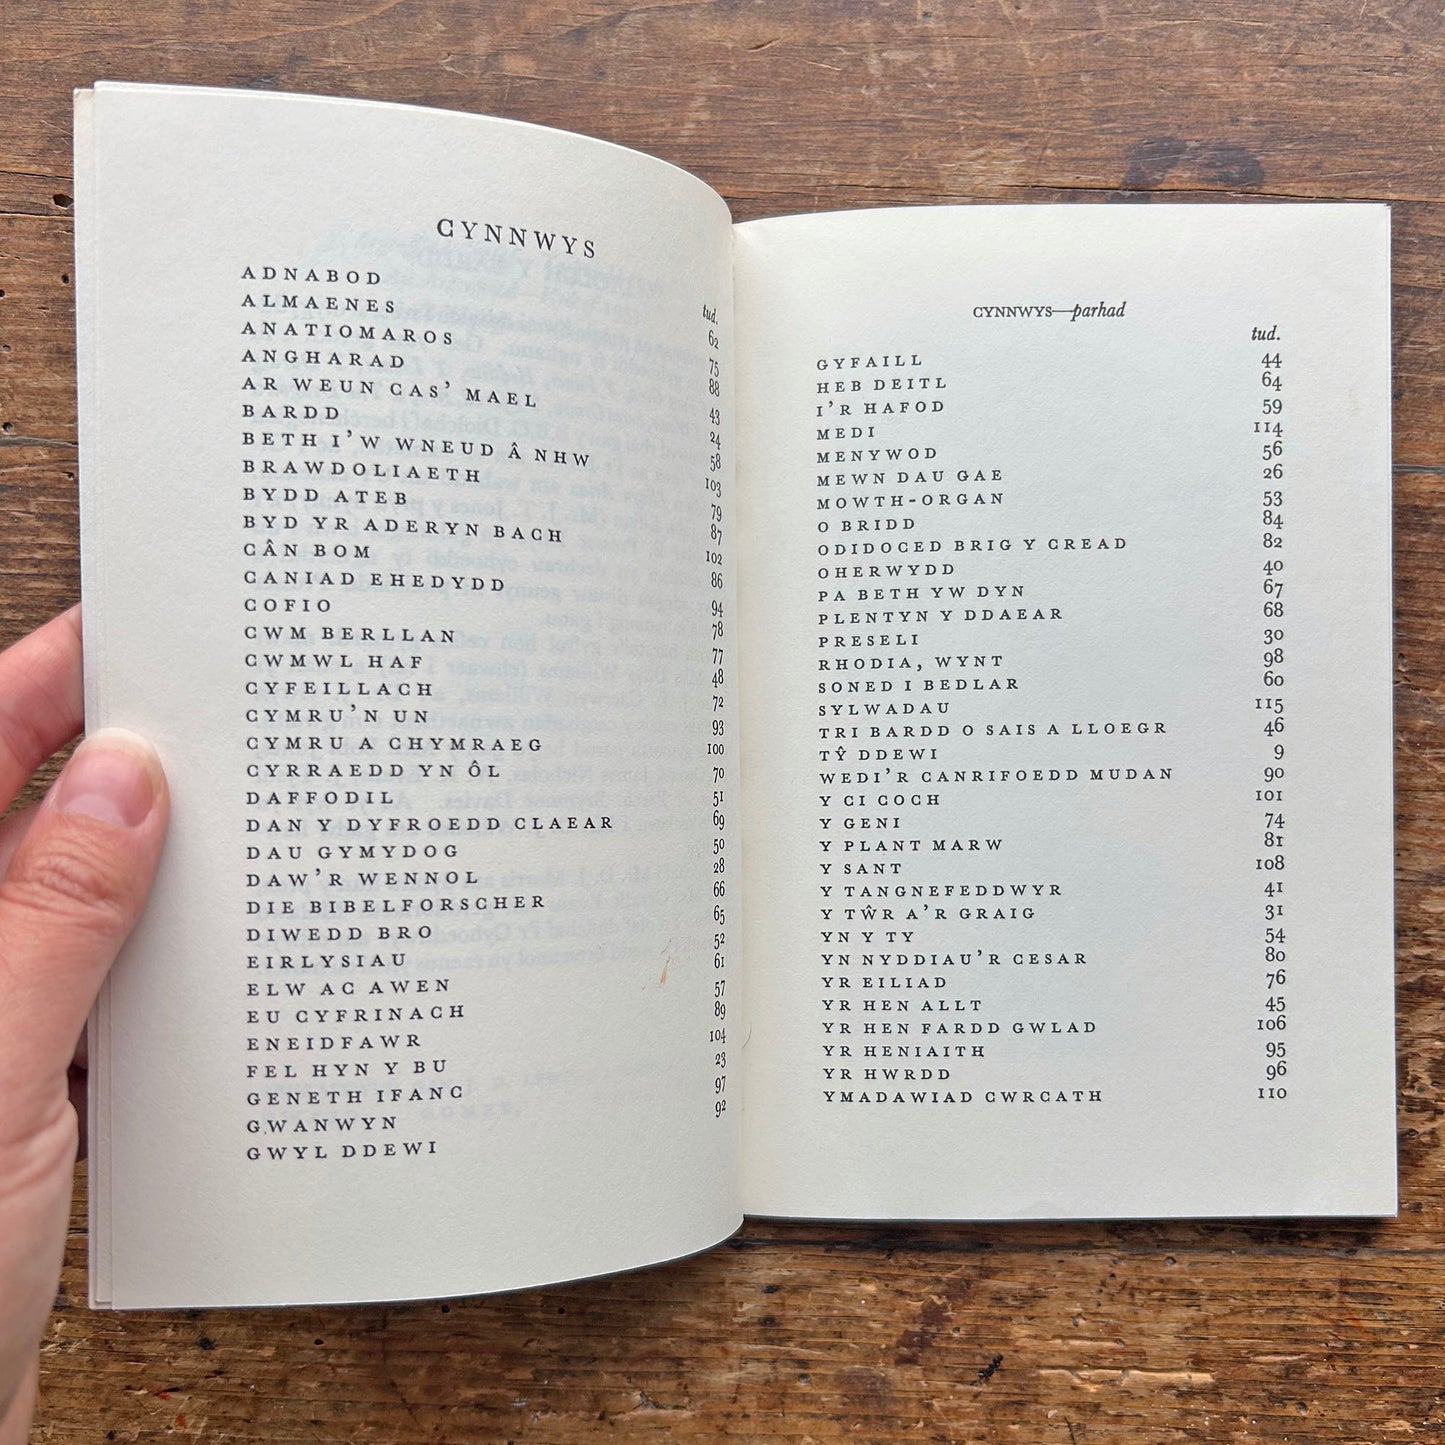 CYNNWYS
tud.
ADNABOD 62
ALMAENES 75
ANATIOMAROS 88
ANGHARAD 43
AR WEUN CAS' MAEL 24
BARDD 58
BETH I'W WNEUD Â NHW 103
BRAWDOLIAETH 79
BYDD ATEB 87
BYD YR ADERYN BACH 102
CÂN BOM 86
CANIAD EHEDYDD 94
COFIO 78
CWM BERLLAN 77
CWMWL HAF 48
CYFEILLACH 72
CYMRU'N UN 93
CYMRU A CHYMRAEG 100
CYRRAEDD YN ÔL 70
DAFFODIL 51
DAN Y DYFROEDD CLAEAR 69
DAU GYMYDOG 50
DAW'R WENNOL 28
DIE BIBELFORSCHER 66
DIWEDD BRO 65
EIRLYSIAU 52
ELW AC AWEN 61
EU CYFRINACH 57
ENEIDFAWR 89
FEL HYN Y BU 104
GENETH IFANC 23
GWANWYN 97
GWYL DDEWI 92
CYNNWYS—parhad
tud.
GYFAILL 44
HEB DEITL 64
I'R HAFOD 59
MEDI 114
MENYWOD 56
MEWN DAU GAE 26
MOWTH-ORGAN 53
O BRIDD 84
ODIDOCED BRIG Y CREAD 82
OHERWYDD 40
PA BETH YW DYN 67
PLENTYN Y DDAEAR 68
PRESELI 30
RHODIA, WYNT 98
SONED I BEDLAR 60
SYLWADAU 115
TRI BARDD O SAIS A LLOEGR 46
TŶ DDEWI 9
WEDI'R CANRIFOEDD MUDAN 90
Y CI COCH 101
Y GENI 74
Y PLANT MARW 81
Y SANT 108
Y TANGNEFEDDWYR 41
Y TŴR A'R GRAIG 31
YN Y TY 54
YN NYDDIAU'R CESAR 80
YR EILIAD 76
YR HEN ALLT 45
YR HEN FARDD GWLAD 106
YR HENIAITH 95
YR HWRDD 96
YMADAWIAD CWRCATH 110